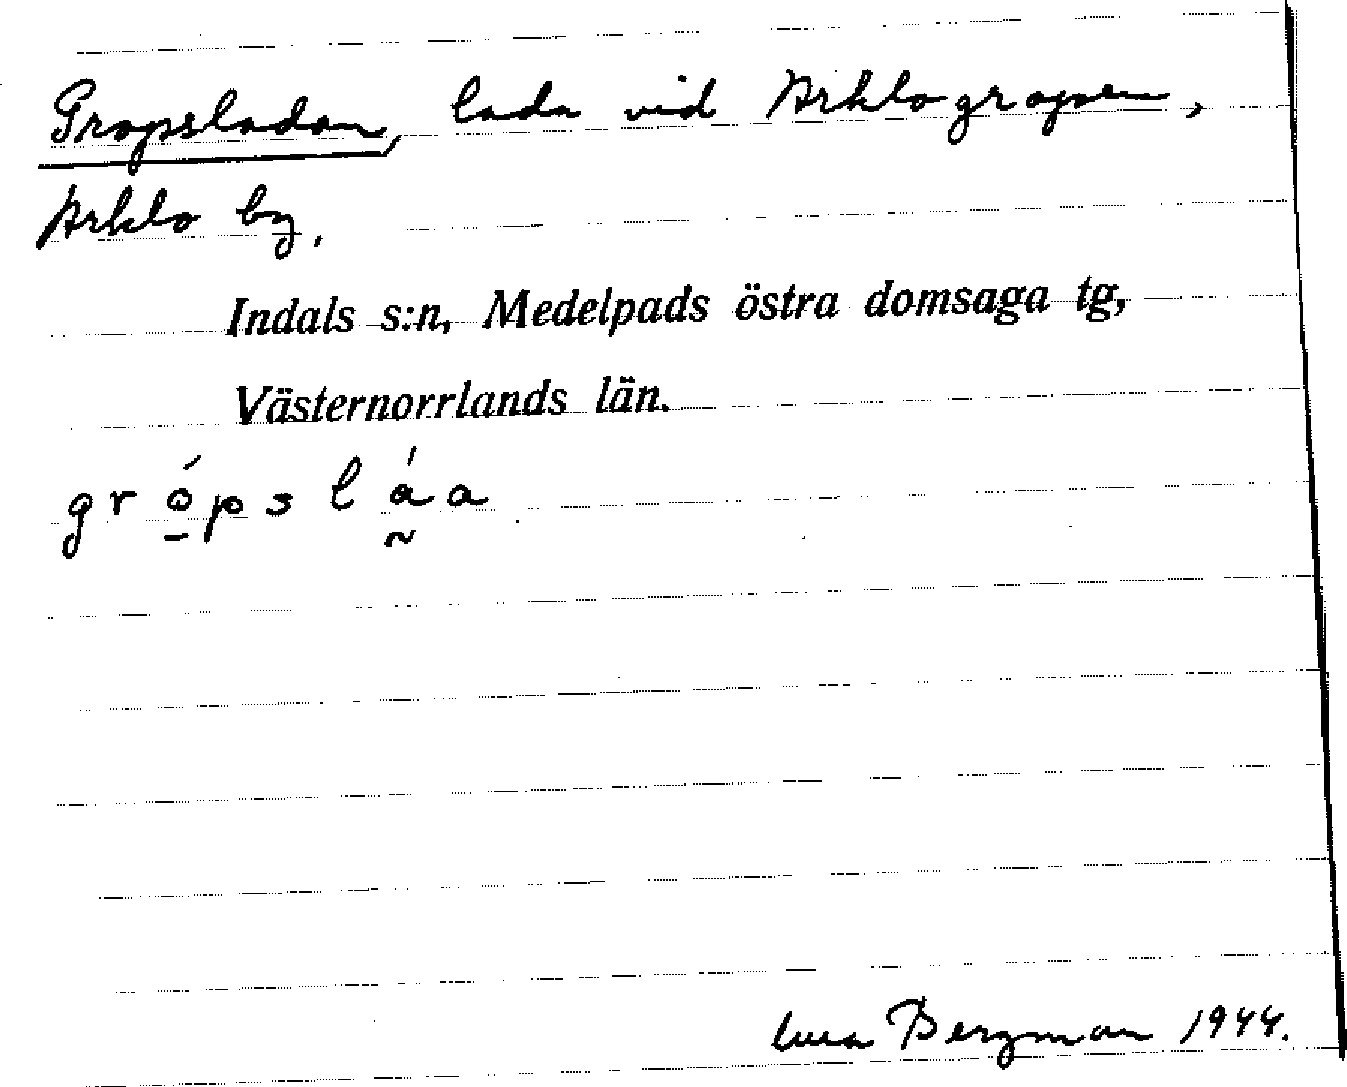 Gropsladan, lada vid Arklogropen,
Arklo by,
Indals s:n, Medelpads östra domsaga tg,
Västernorrlands län.
gró̱psl á̰a
Bergman 1944.